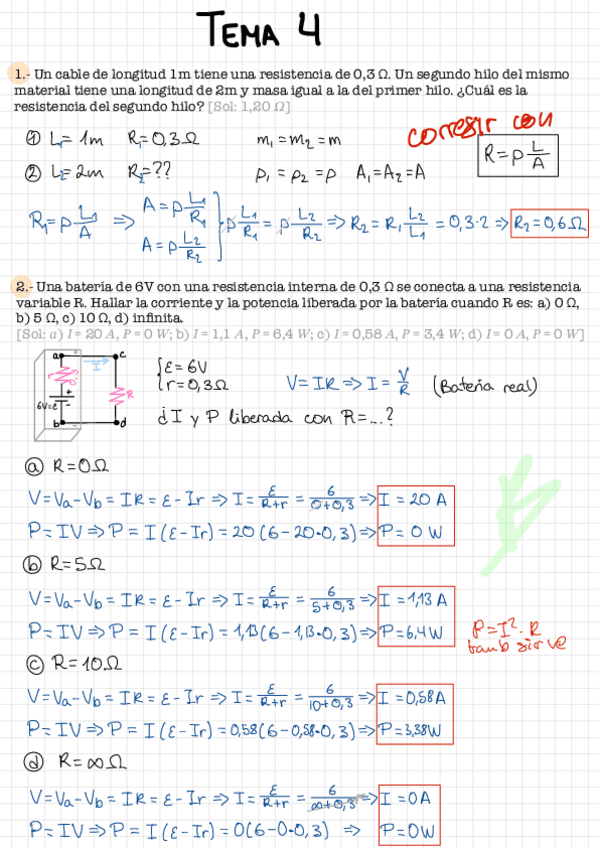 TEMA 4
1.- Un cable de longitud 1m tiene una resistencia de 0,3 Ω. Un segundo hilo del mismo
material tiene una longitud de 2m y masa igual a la del primer hilo. ¿Cuál es la
resistencia del segundo hilo? [Sol: 1,20 Ω]
corregir con
① L₁= 1m R₁=0,3Ω m₁ = m₂ = m
R = ρ L/A
② L₂= 2m R₂=?? ρ₁ = ρ₂ = ρ A₁=A₂=A
R₁=ρ L₁/A ⇒ A = ρ L₁/R₁
A = ρ L₂/R₂ } ρ L₁/R₁ = ρ L₂/R₂ ⇒ R₂ = R₁ L₂/L₁ = 0,3·2 ⇒ R₂=0,6Ω
2.- Una batería de 6V con una resistencia interna de 0,3 Ω se conecta a una resistencia
variable R. Hallar la corriente y la potencia liberada por la batería cuando R es: a) 0 Ω,
b) 5 Ω, c) 10 Ω, d) infinita.
[Sol: a) I = 20 A, P = 0 W; b) I = 1,1 A, P = 6,4 W; c) I = 0,58 A, P = 3,4 W; d) I = 0 A, P = 0 W]
a c
I
r 0,3
R
6V=ε
+
-
b d
{ ε = 6V
r = 0,3Ω
V= IR ⇒ I = V/R (Batería real)
¿I y P liberada con R=...?
ⓐ R=0Ω
V=Va-Vb = IR = ε - Ir ⇒ I= ε/R+r = 6/0+0,3 ⇒ I = 20 A
P= IV ⇒ P = I(ε-Ir) = 20(6-20·0,3) ⇒ P= 0 W
ⓑ R=5Ω
V=Va-Vb = IR = ε - Ir ⇒ I= ε/R+r = 6/5+0,3 ⇒ I = 1,13 A
P= IV ⇒ P = I(ε-Ir) = 1,13(6-1,13·0,3) ⇒ P=6,4W
P=I²·R
tamb sirve
ⓒ R=10Ω
V=Va-Vb = IR = ε - Ir ⇒ I= ε/R+r = 6/10+0,3 ⇒ I=0,58A
P= IV ⇒ P = I(ε-Ir) = 0,58(6-0,58·0,3) ⇒ P=3,38W
ⓓ R=∞Ω
V=Va-Vb = IR = ε - Ir ⇒ I= ε/R+r = 6/∞+0,3 ⇒ I =0A
P= IV ⇒ P = I(ε-Ir) = 0(6-0·0,3) ⇒ P=0W